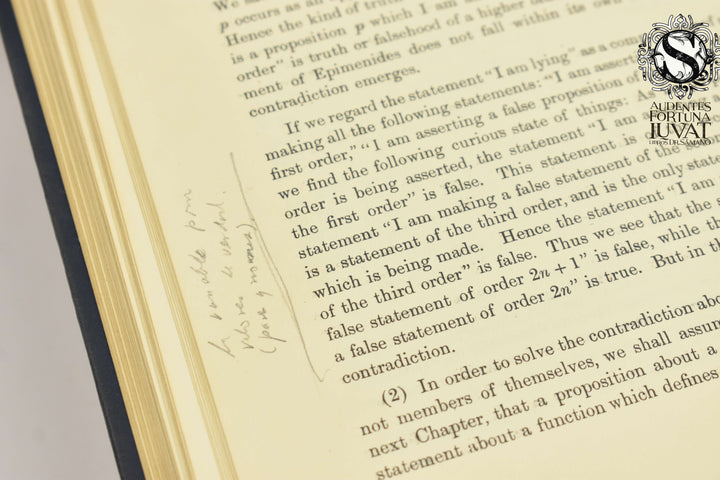 p occurs as an
Hence the kind of truth
is a proposition p which I am
order" is truth or falsehood of a higher
ment of Epimenides does not fall within its own
contradiction emerges.
If we regard the statement "I am lying" as a com
making all the following statements: "I am assert
first order," "I am asserting a false proposition of
we find the following curious state of things: As
order is being asserted, the statement "I am
the first order" is false. This statement is
statement "I am making a false statement of the second
is a statement of the third order, and is the only state
which is being made. Hence the statement "I am
of the third order" is false. Thus we see that the s
false statement of order 2n + 1" is false, while th
a false statement of order 2n" is true. But in th
contradiction.
(2) In order to solve the contradiction abo
not members of themselves, we shall assum
next Chapter, that a proposition about a
statement about a function which defines
la variable
valores de verdad.
S
AUDENTES
FORTUNA
IUVAT
LIBROS DEL SAMANO